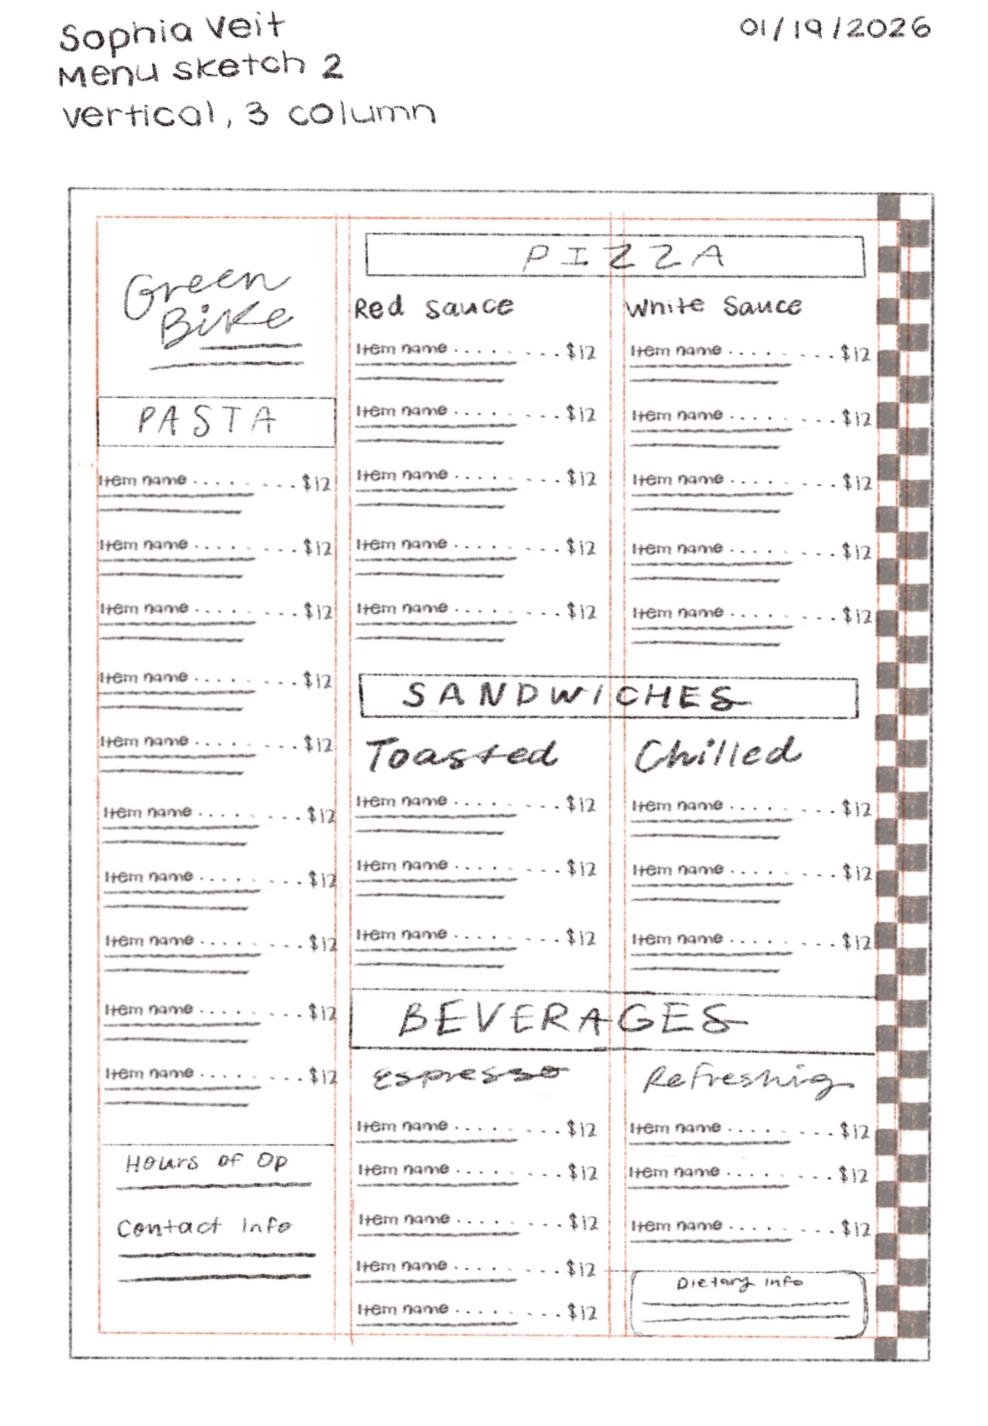 Sophia Veit
Menu sketch 2
vertical, 3 column
01/19/2026
Green
Bike
PASTA
Item name . . . . . . . . . $12
Item name . . . . . . . . . $12
Item name . . . . . . . . . $12
Item name . . . . . . . . . $12
Item name . . . . . . . . . $12
Item name . . . . . . . . . $12
Item name . . . . . . . . . $12
Item name . . . . . . . . . $12
Item name . . . . . . . . . $12
Item name . . . . . . . . . $12
Hours of Op
Contact info
PIZZA
Red Sauce
Item name . . . . . . . . . $12
Item name . . . . . . . . . $12
Item name . . . . . . . . . $12
Item name . . . . . . . . . $12
Item name . . . . . . . . . $12
White Sauce
Item name . . . . . . . . . $12
Item name . . . . . . . . . $12
Item name . . . . . . . . . $12
Item name . . . . . . . . . $12
Item name . . . . . . . . . $12
SANDWICHES
Toasted
Item name . . . . . . . . . $12
Item name . . . . . . . . . $12
Item name . . . . . . . . . $12
Chilled
Item name . . . . . . . . . $12
Item name . . . . . . . . . $12
Item name . . . . . . . . . $12
BEVERAGES
Espresso
Item name . . . . . . . . . $12
Item name . . . . . . . . . $12
Item name . . . . . . . . . $12
Item name . . . . . . . . . $12
Item name . . . . . . . . . $12
Refreshig
Item name . . . . . . . . . $12
Item name . . . . . . . . . $12
Item name . . . . . . . . . $12
Dietary info